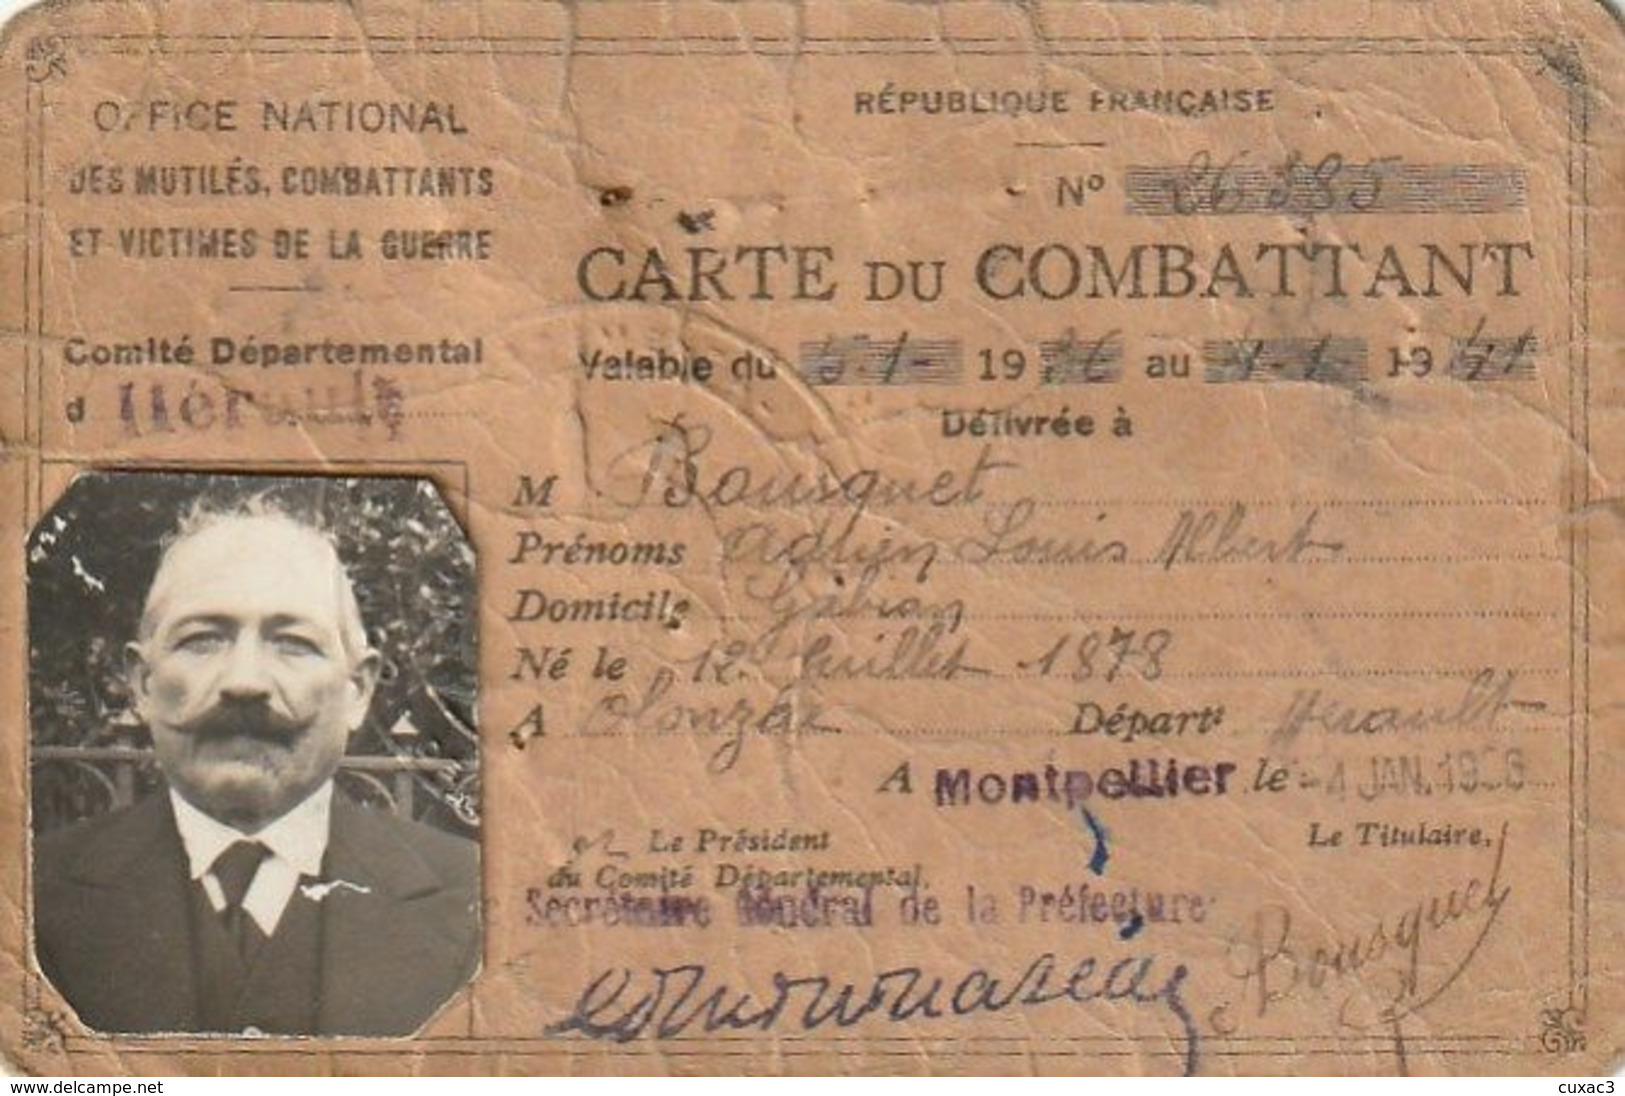 OFFICE NATIONAL
DES MUTILÉS, COMBATTANTS
ET VICTIMES DE LA GUERRE
Comité Départemental
d Hérault
RÉPUBLIQUE FRANÇAISE
Nº 26385
CARTE DU COMBATTANT
Valable du 5-1- 1936 au 4-1- 1941
Délivrée à
M Bousquet
Prénoms Adrien Louis Albert
Domicile Gabian
Né le 12 Juillet 1878
A Olonzac Départt Hérault
A Montpellier le -4 JAN. 1936
Le Président
du Comité Départemental,
Secrétaire Général de la Préfecture
Le Titulaire,
Bousquet
www.delcampe.net
cuxac3